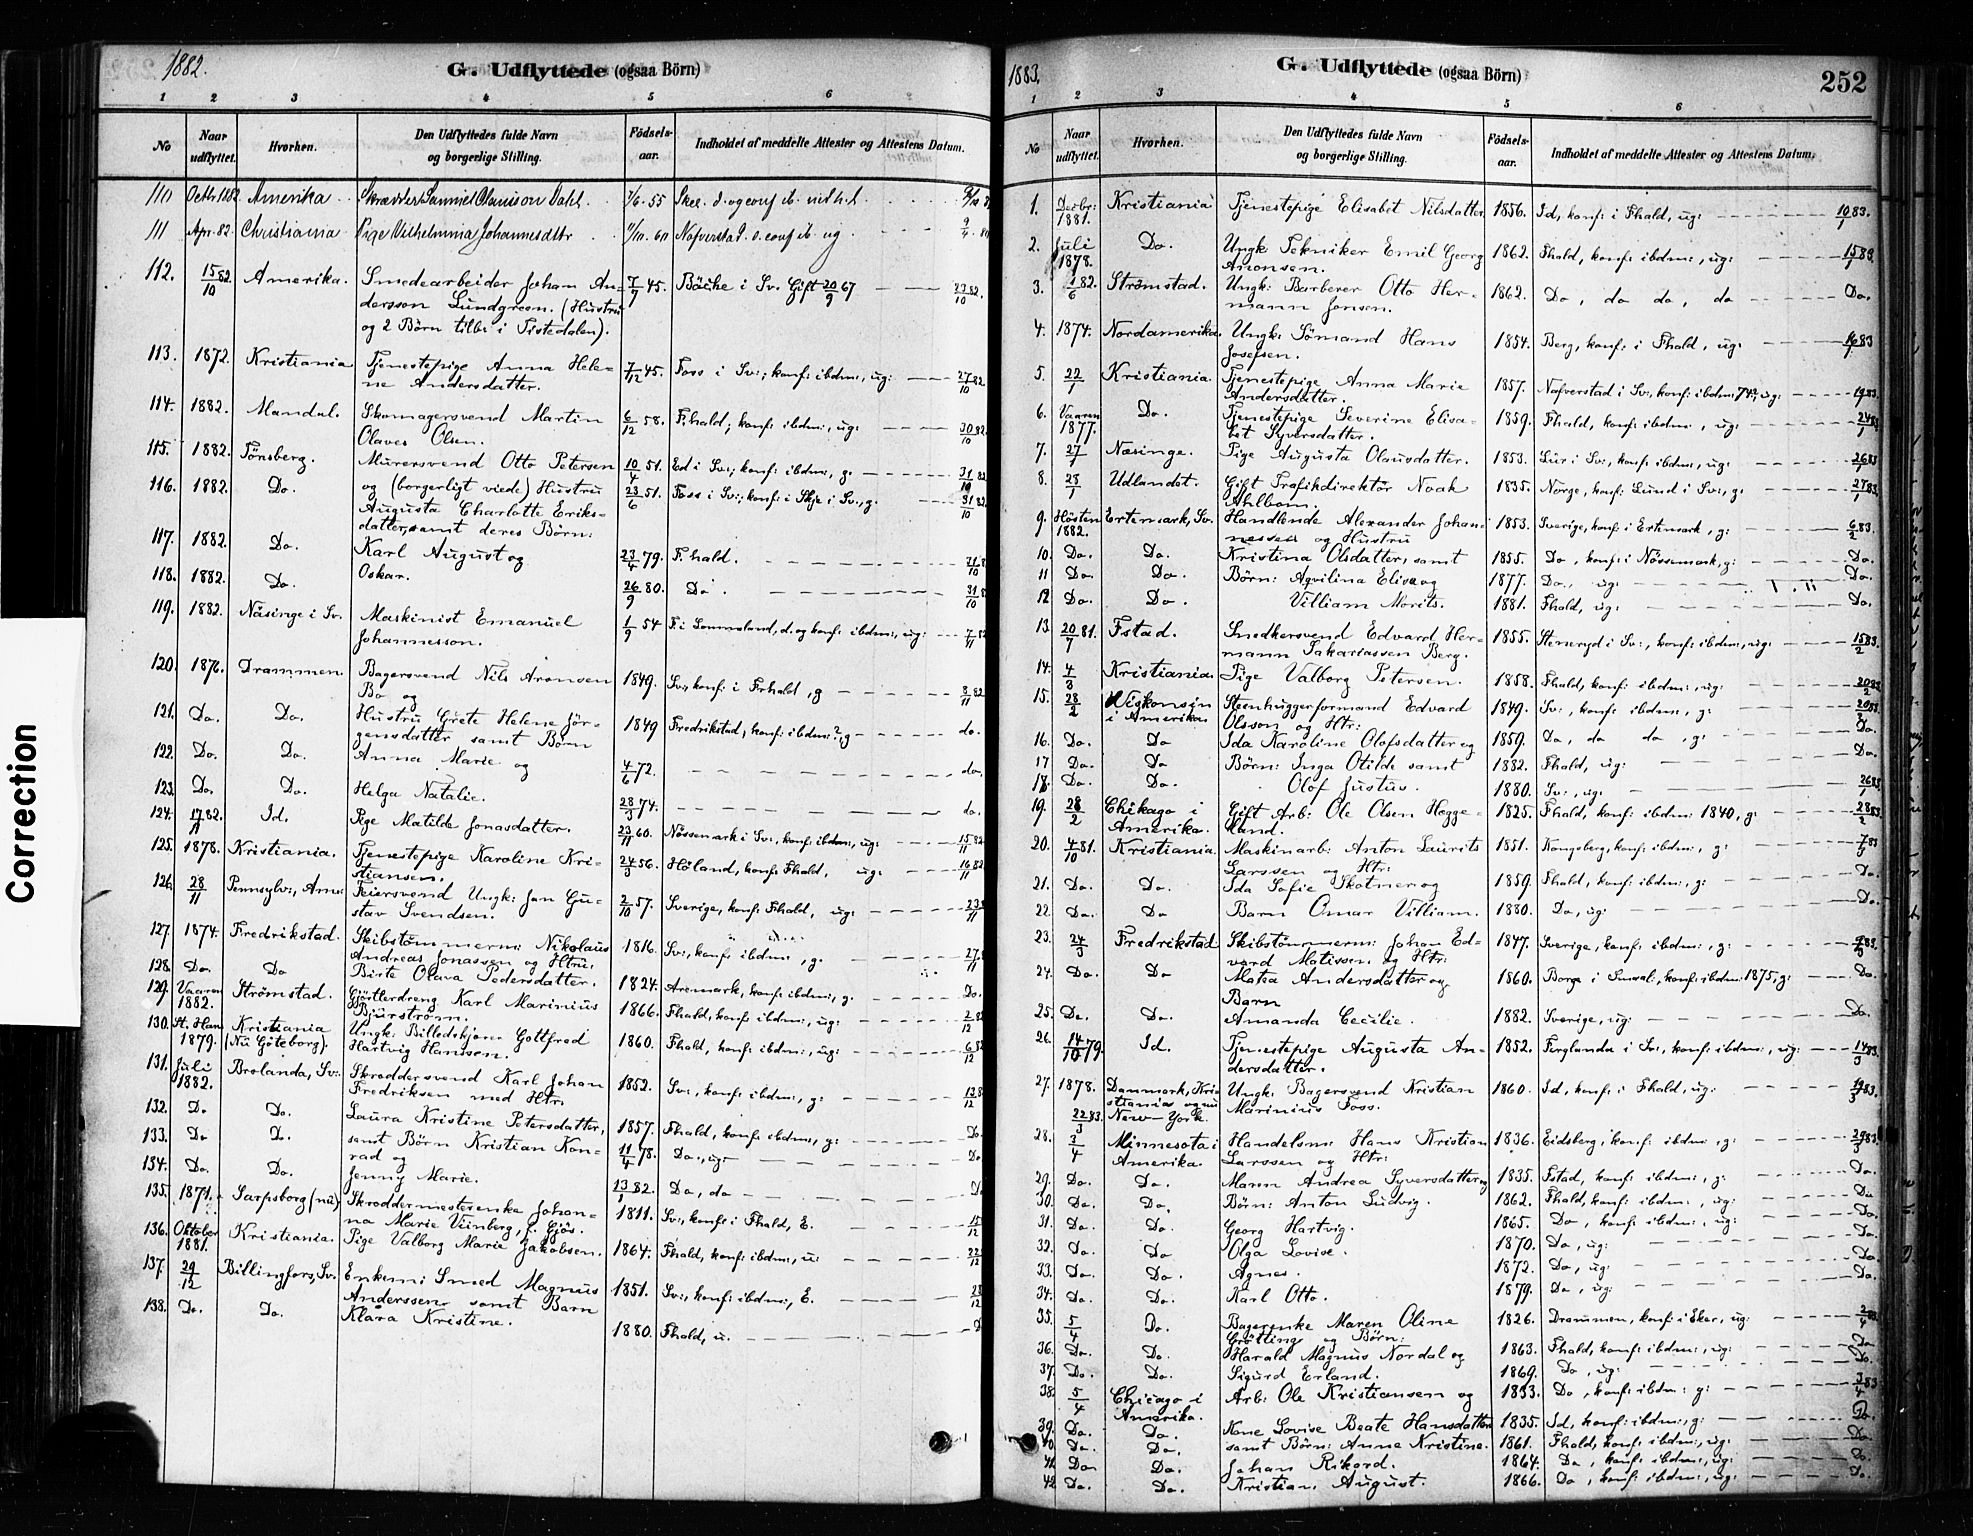 Correction
1882.
G. Udflyttede (ogsaa Börn)
1 2 3 4 5 6
No
Naar udflyttet.
Hvorhen.
Den Udflyttedes fulde Navn og borgerlige Stilling.
Födsels-aar.
Indholdet af meddelte Attester og Attestens Datum.
110 Octbr 1882 Amerika. Skrædder Samuel Dahl. 7/6. 55
111 Apr. 82 Christiania Pige Vilhelmina Johannesdttr Nafverstad. d. conf ib. ug 9/4
112. 15/10 82 Amerika. Smedearbeider Johan An- 7/7 45. Bäcke i Sv. Gift 20/9 67 23/10 82.
dersson Lundgreen. (Hustru
og 2 Börn tilbr i Tistedalen).
113. 1872. Kristiania Tjenestepige Anna Hele- 7/12 45. Foss i Sv:, konf: ibdm:, ug: 27/10 82
ne Andersdatter.
114. 1882. Mandal. Skomagersvend Martin 6/12 58. F.hald, konf: ibdm:, ug: 30/10 82.
Olaves Olsen.
115. 1882. Tönsberg. Murersvend Otto Petersen 10/4 51. Ed i Sv:, konf: ibdm:, g: 31/10 82
116. 1882. Do. og (borgerligt viede) Hustru 23/6 51. Foss i Sv:, konf: i Skje i Sv:, g: 31/10 82
Augusta Charlotte Eriks-
datter, samt deres Börn:
117. 1882. Do. Karl August og 23/4 79. F.hald. 31/10
118. 1882. Do. Oskar. 26/9 80. Do. 31/10
119. 1882. Näsinge i Sv. Maskinist Emanuel 1/9 54 F. i Lommeland, d. og konf: ibdm:, ug: 7/11 82
Johannesson.
120. 1876. Drammen Bagersvend Nils Aronsen 1849. Sv:, konf: i Frhald, g 8/11 82
Bo og
121. Do. Do. Hustru Grete Helene Jör- 1849 Fredrikstad, konf: ibdm:?, g do.
gensdatter samt Börn
122. Do. Do. Anna Marie og 4/6 72. do.
123. Do. Do. Helga Natalie. 28/3 74. do.
124. 17/11 82. Id. Pige Matilde Jonasdatter. 23/11 60. Nössemark i Sv:, konf: ibdm:, ug: 15/11 82
125. 1878. Kristiania. Tjenestepige Karoline Kri- 24/3 56. Höland, konf: Fhald, ug: 16/11 82
stiansen.
126. 28/11 Pennsylv:, Am: Feiersvend Ungk: Jan Gu- 2/10 57. Sverige, konf: Fhald, ug: 23/11
stav Svendsen.
127. 1874. Fredrikstad. Skibstömmerm: Nikolaus 1816. Sv:, konf: ibdm:, g. 27/11
Andreas Jonassen og Htru:
128. Do. Do Birte Olava Pedersdatter. 1824. Aremark, konf: ibdm:, g. Do.
129. Vaaren 1882. Strömstad. Gjörtlerdreng Karl Marinius 1866. Fhald, konf: ibdm:, ug: 2/12 82
Bjürström.
130. St. Han 1879. Kristiania (Nu Göteborg). Ungk: Billedskjærer Gottfred 1860. Fhald, konf: ibdm:, ug: 6/12 82
Hartvig Hanssen.
131. Juli 1882. Brolanda, Sv: Skræddersvend Karl Johan 1852. Sv:, konf: ibdm:, g: 13/12 8
Fredriksen med Htr:
132. D. Do. Laura Kristine Petersdatter, 1857. Fhald, konf: ibdm:, g: Do.
133. Do Do. samt Börn Kristian Kon- 11/4 78. Do., ug: Do
rad og
134. Do. Do. Jenny Marie. 13/1 82. Do, do D
135. 1871. Sarpsborg (nu) Skræddermesterenke Johan- 1811. Sv:, konf: i Fhald, E. 15/12
na Marie Vünberg, f. Gjös.
136. Oktober 1881. Kristiania. Pige Valborg Marie Jakobsen. 1864. Fhald, konf: ibdm:, u: 22/12
137. 29/12 Billingfors, Sv. Enkem: Smed Magnus 1851. Sv:, konf: ibdm:, E. 28/12
Anderssen, samt Barn
138. Do. Do. Klara Kristine. 1880. Fhald, u. D
1883.
G. Udflyttede (ogsaa Börn)
252
1 2 3 4 5 6
No
Naar udflyttet.
Hvorhen.
Den Udflyttedes fulde Navn og borgerlige Stilling.
Födsels-aar.
Indholdet af meddelte Attester og Attestens Datum.
1. Decbr: 1881. Kristiania Tjenestepige Elisabet Nilsdatter 1856. Id, konf: i Fhald, ug: 10/1 83.
2. Juli 1878. Do. Ungk Tekniker Emil Georg 1862. Fhald, konf: ibdm:, ug: 15/1 83.
Aronsen.
3. 1/6 82. Strömstad. Ungk: Barberer Otto Her- 1862. Do, do do, do Do.
mann Jonsen.
4. 1874. Nordamerika. Ungk: Sömand Hans 1854. Berg, konf: i Fhald, ug: 16/1 83
Josefsen.
5. 22/1 Kristiania. Tjenestepige Anna Marie 1857. Nafverstad i Sv:, konf: ibdm: 74?, ug: 83.
Andersdatter.
6. Vaaren 1877. Do. Tjenestepige Severine Elisa- 1859. Fhald, konf: ibdm:, ug: 24/1 83
bet Syversdatter.
7. 27/1 Næsinge. Pige Augusta Olausdatter. 1853. Lur i Sv:, konf: ibdm:, ug: 26/1 83
8. 28/1 Udlandet. Gift Trafikdirektör Noak 1835. Norge, konf: Lund i Sv:, g: 27/1 83,
Ahlbom.
9. Hösten 1882. Ertemark, Sv. Handlende Alexander Johan- 1853. Sverige, konf: i Ertemark, g: 6/2 83.
nessen og Hustru
10. Do. Do. Kristina Olsdatter, samt 1855. Do, konf: i Nössemark, g: Do.
11 Do. Do. Börn: Agvilina Elise og 1877. Do., ug: Do.
12 Do. Do. Villiam Morits. 1881. Fhald, ug: Do.
13. 20/7 81. Fstad. Snedkersvend Edvard Her- 1855. Steneryd i Sv:, konf: ibdm:, ug: 15/2 83.
mann Sakariassen Berg.
14. 4/3 Kristiania. Pige Valborg Petersen. 1858. Fhald, konf: ibdm:, ug: 20/2 83
15. 28/2 Wiskonsin i Amerika Stenhuggerformand Edvard 1849. Sv:, konf: ibdm:, g: 20 83.
Olsson og Htr:
16. Do. Do Ida Karoline Olofsdatter og 1859. Do, do do, g: Do.
17 Do. Do Börn: Inga Otilde samt 1882. Fhald, ug: Do.
18. Do. Do. Olof Justus. 1880. Sv:, ug: 26 83
19. 28/2 Chikago i Amerika. Gift Arb: Ole Olsen Hegge- 1825. Fhald, konf: ibdm: 1840, g: 28/2 83
land.
20. 4/10 81. Kristiania. Maskinarb: Anton Laurits 1851. Kongsberg, konf: ibdm:, g: 7/3 83
Larssen og Htr:
21. Do. Do. Ida Sofie Skotner og 1859. Fhald, konf: ibdm:, g: Do.
22. Do. Do Barn Omar Villiam. 1880. Do, ug: Do.
23. 24/3 Fredrikstad Skibstömmerm: Johan Ed- 1847. Sverige, konf: ibdm:, g: 83.
vard Matissen og Htr:
24. Do. Do Matea Andersdatter og 1860. Borge i Smaal:, konf: ibdm: 1875, g: Do.
Barn
25. Do. Do. Amanda Cecilie. 1882. Sverige, ug: Do.
26. 14/10 79. Id. Tjenestepige Augusta An- 1852. Ferglanda i Sv:, konf: ibdm:, ug: 14/3 83.
dersdatter.
27. 1878. Danmark, Kri- stiania og nu Ungk: Bagersvend Kristian 1860. Id, konf: i Fhald, ug: 83.
22/3 83. New-York. Marinius Foss.
28. 3/4 Minnesota i Amerika. Handelsm: Hans Kristian 1836. Eidsberg, konf: ibdm:, g: 29/3 83.
Larssen og Htr:
29. Do. Do. Maren Andrea Syversdatter og 1835. Fstad, konf: ibdm:, g: Do.
30. Do. Do. Börn: Anton Ludvig. 1862. Fhald, konf: ibdm:, ug: Do
31. Do. Do. Georg Hartvig. 1865. Do, konf: ibdm:, ug: Do.
32. Do. Do Olga Lovise. 1870. Do, ug: Do.
33. Do. Do. Agnes. 1872. Do, ug: Do.
34. Do. Do. Karl Otto. 1879. Do, ug: Do.
35. 5/4 Do. Bagerenke Maren Oline 1826. Drammen, konf: i Eker, ug: 2/4 83.
Grötting og Börn:
36. Do. Do. Harald Magnus Nordal og 1863. Fhald, konf: ibdm:, ug: Do.
37. Do. Do. Sigurd Erland. 1869. Do, ug: Do.
38. 5/4 Chicago i Amerika. Arb: Ole Kristiansen og 1833. Do, konf: ibdm: g: 3/4 83
39. Do. Do. Kone Lovise Beate Hansdatter 1835. Id, konf: ibdm:, g: Do.
40. Do. Do. samt Börn: Anne Kristine. 1861. Fhald, konf: ibdm:, ug: Do.
41 Do. Do. Johan Rikard. 1864. Do, konf: ibdm:, ug: Do.
42 Do. Do. Kristian August. 1866. Do, konf: ibdm:, ug: Do.